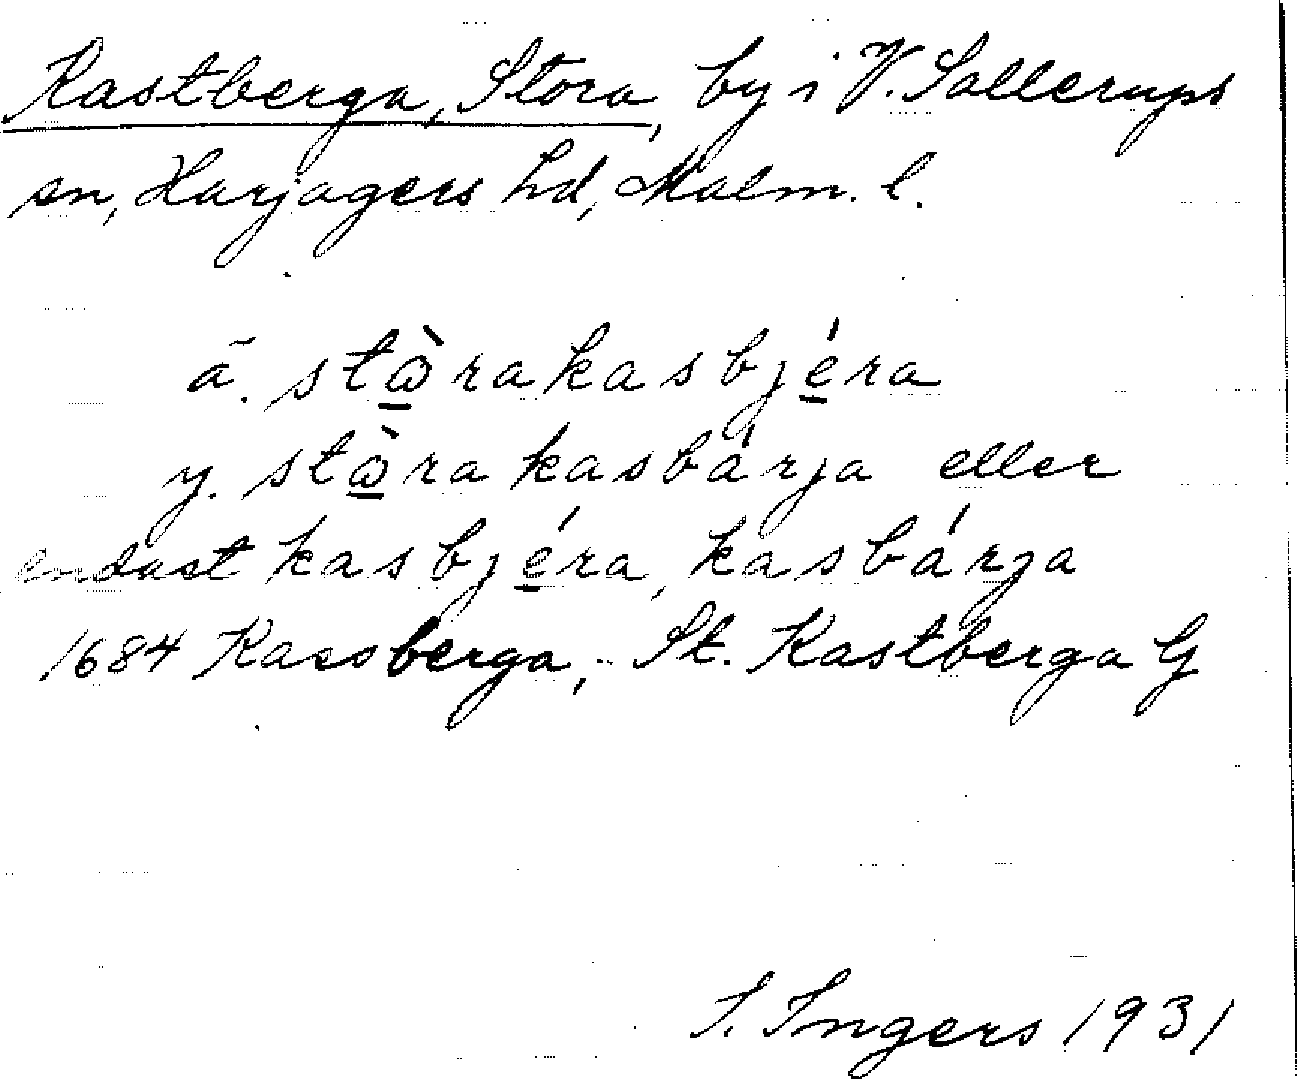 Kastberga, Stora, by i V. Sallerups
sn, Harjagers hd, Malm. l.
ä. stò̱rakasbjé̱ra
y. stò̱rakasbárja eller
endast kasbjé̱ra, kasbárja
1684 Kassberga, St. Kastberga G
I. Ingers 1931